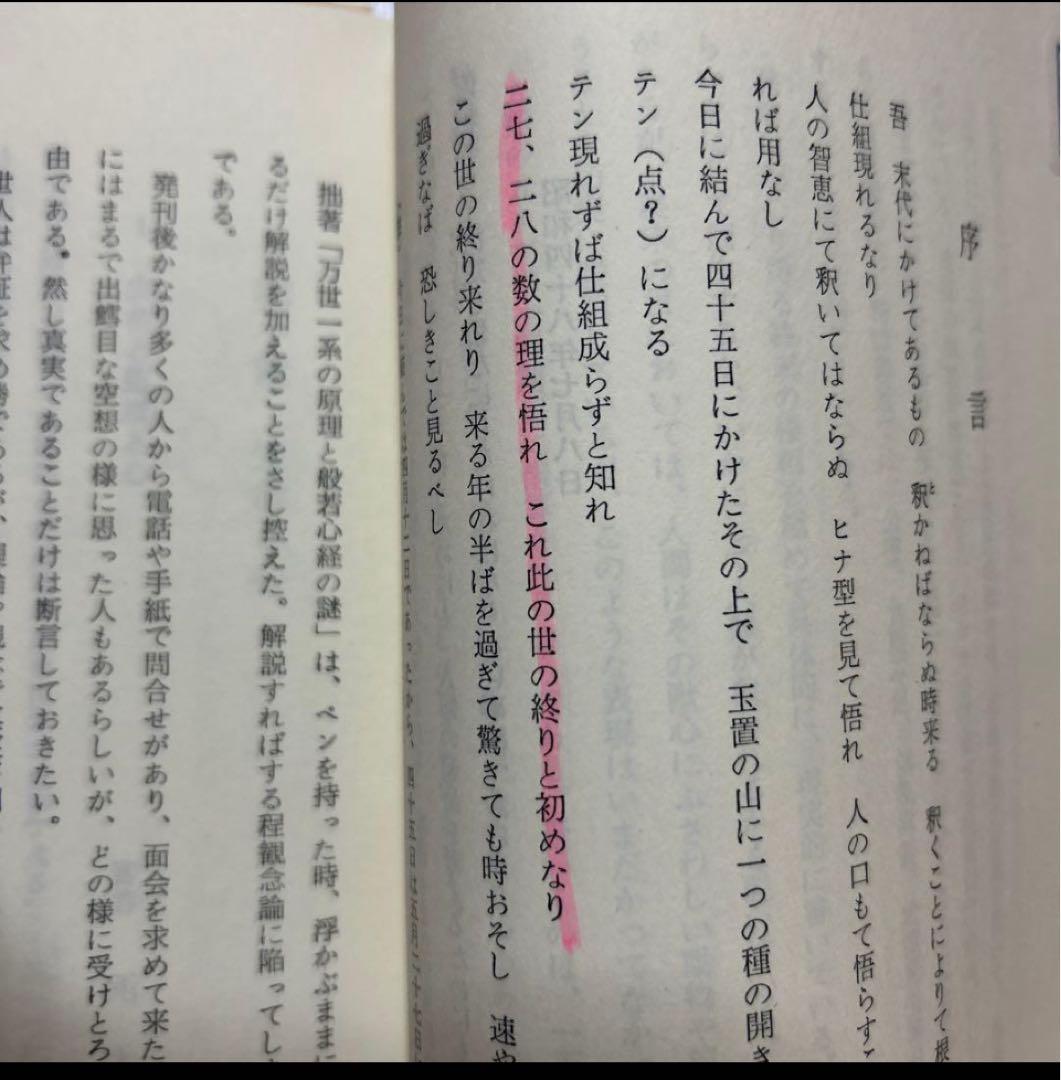 序言
吾 末代にかけてあるもの 釈かねばならぬ時来る 釈くことによりて根
ど
仕組現れるなり
人の智恵にて釈いてはならぬ ヒナ型を見て悟れ 人の口もて悟らす
れば用なし
今日に結んで四十五日にかけたその上で 玉置の山に一つの種の開き
テン（点？）になる
テン現れずば仕組成らずと知れ
二七、二八の数の理を悟れ これ此の世の終りと初めなり
この世の終り来れり 来る年の半ばを過ぎて驚きても時おそし 速や
過ぎなば 恐しきこと見るべし
拙著「万世一系の原理と般若心経の謎」は、ペンを持った時、浮かぶままに
るだけ解説を加えることをさし控えた。解説すればする程観念論に陥ってし
である。
発刊後かなり多くの人から電話や手紙で問合せがあり、面会を求めて来た
にはまるで出鱈目な空想の様に思った人もあるらしいが、どの様に受けとろ
由である。然し真実であることだけは断言しておきたい。